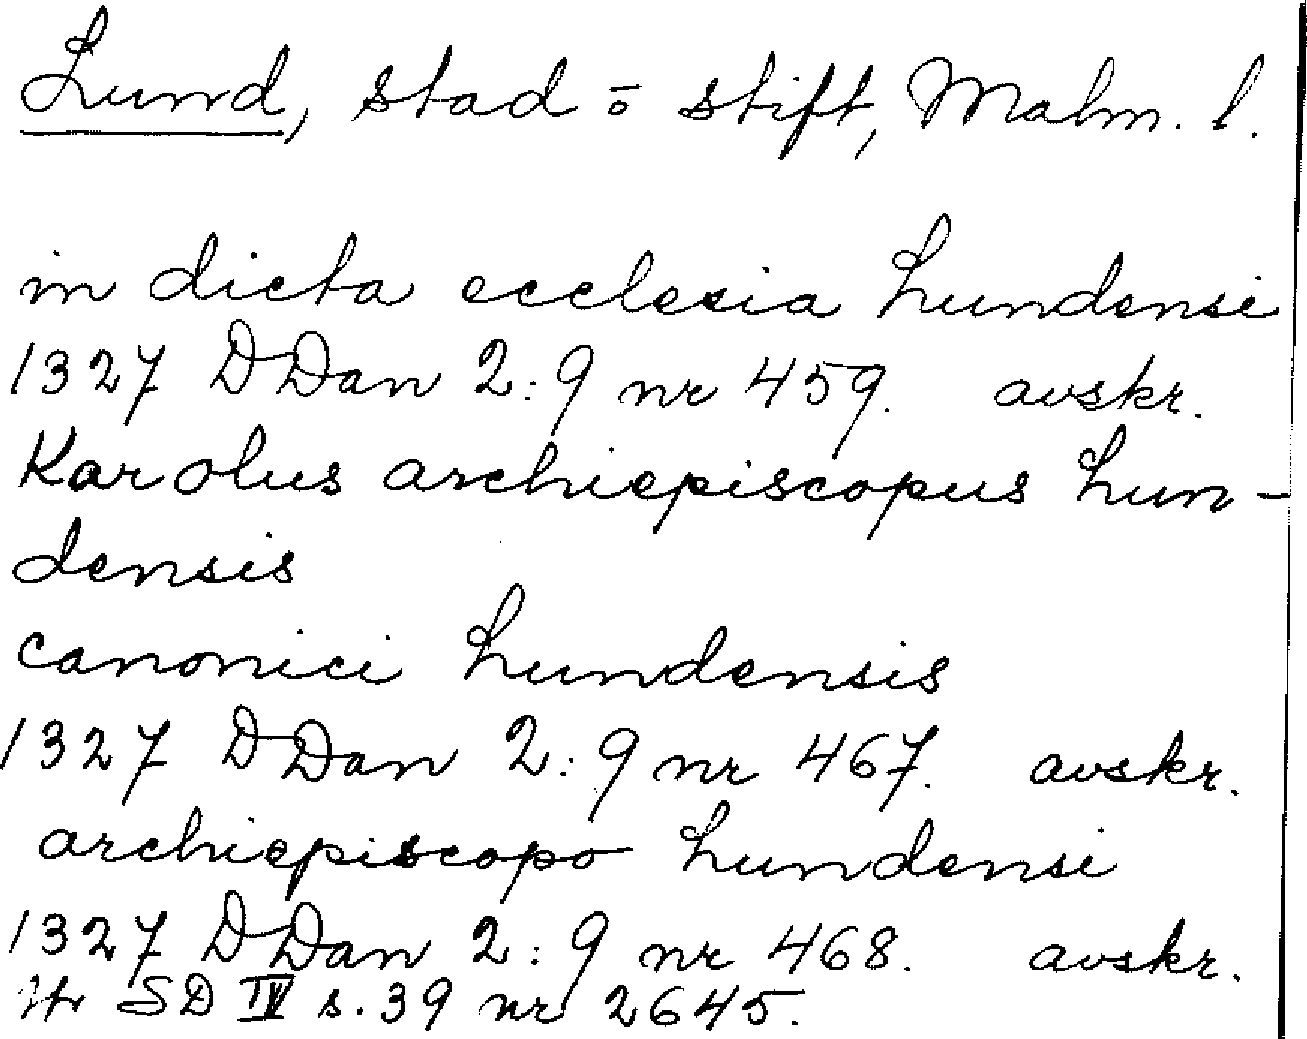 Lund, stad o stift, Malm. l.
in dicta ecclesia Lundensi
1327 DDan 2:9 nr 459. avskr.
Karolus archiepiscopus Lun-
densis
canonici Lundensis
1327 DDan 2:9 nr 467. avskr.
archiepiscopo Lundensi
1327 DDan 2:9 nr 468. avskr.
SD IV s. 39 nr 2645.